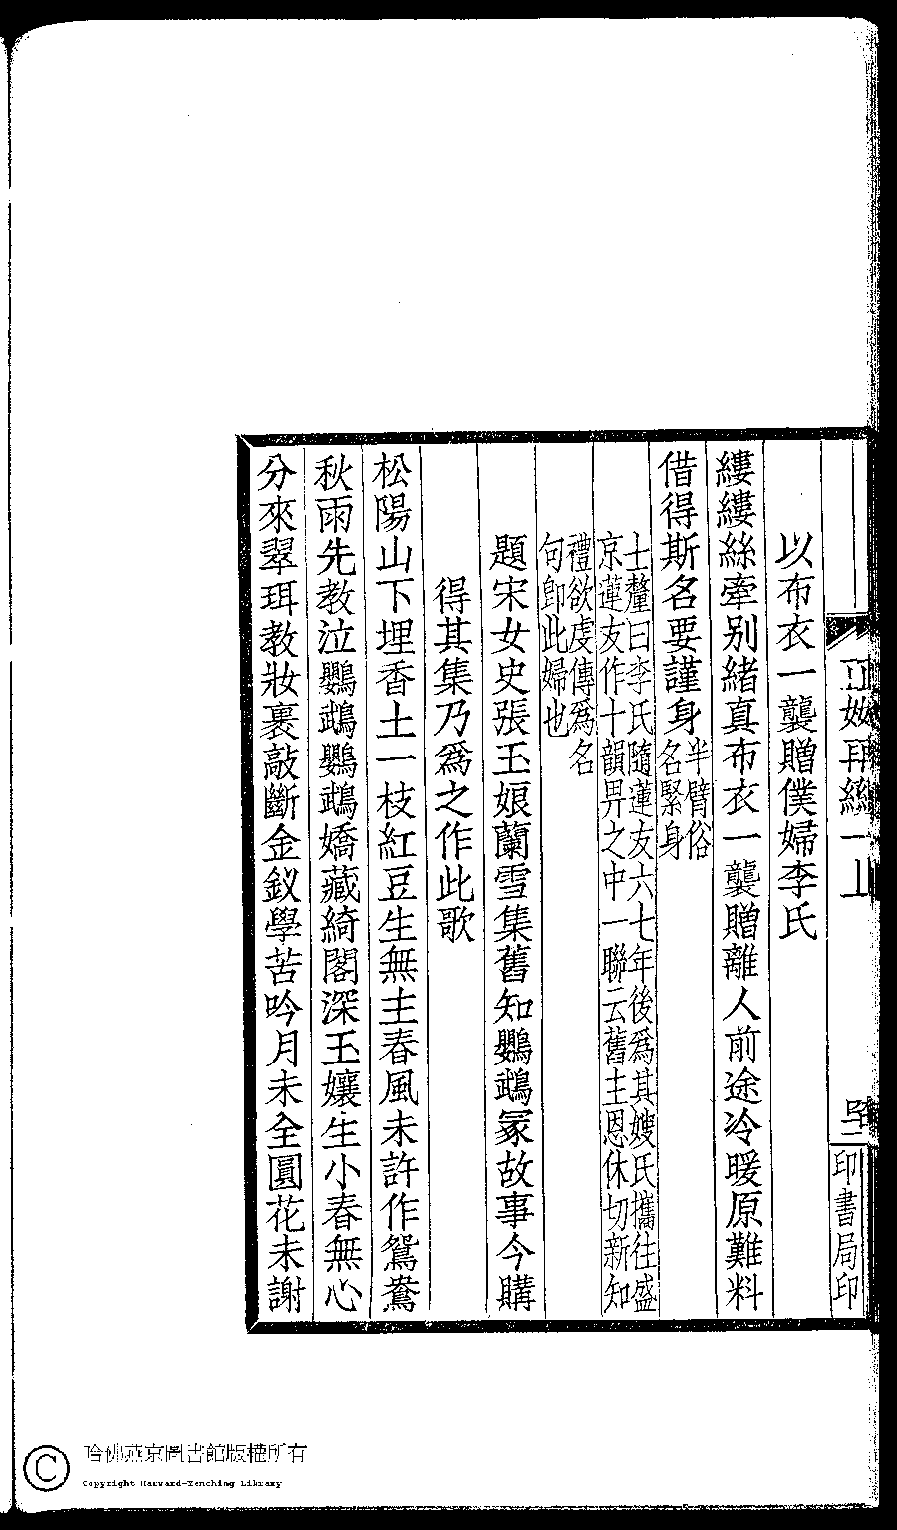 印書局印
以布衣一襲贈僕婦李氏
縷縷絲牽別緒真布衣一襲贈離人前途冷暖原難料
借得斯名要謹身半臂俗名緊身
士釐曰李氏隨蓮友六七年後爲其嫂氏攜往盛
京蓮友作十韻畀之中一聯云舊主恩休切新知
禮欲虔傳爲名
句卽此婦也
題宋女史張玉娘蘭雪集舊知鸚鵡冢故事今購
得其集乃爲之作此歌
松陽山下埋香土一枝紅豆生無主春風未許作鴛鴦
秋雨先教泣鸚鵡鸚鵡嬌藏綺閣深玉孃生小春無心
分來翠珥教妝裹敲斷金釵學苦吟月未全圓花未謝
哈佛燕京圖書館版權所有
Copyright Harvard-Yenching Library